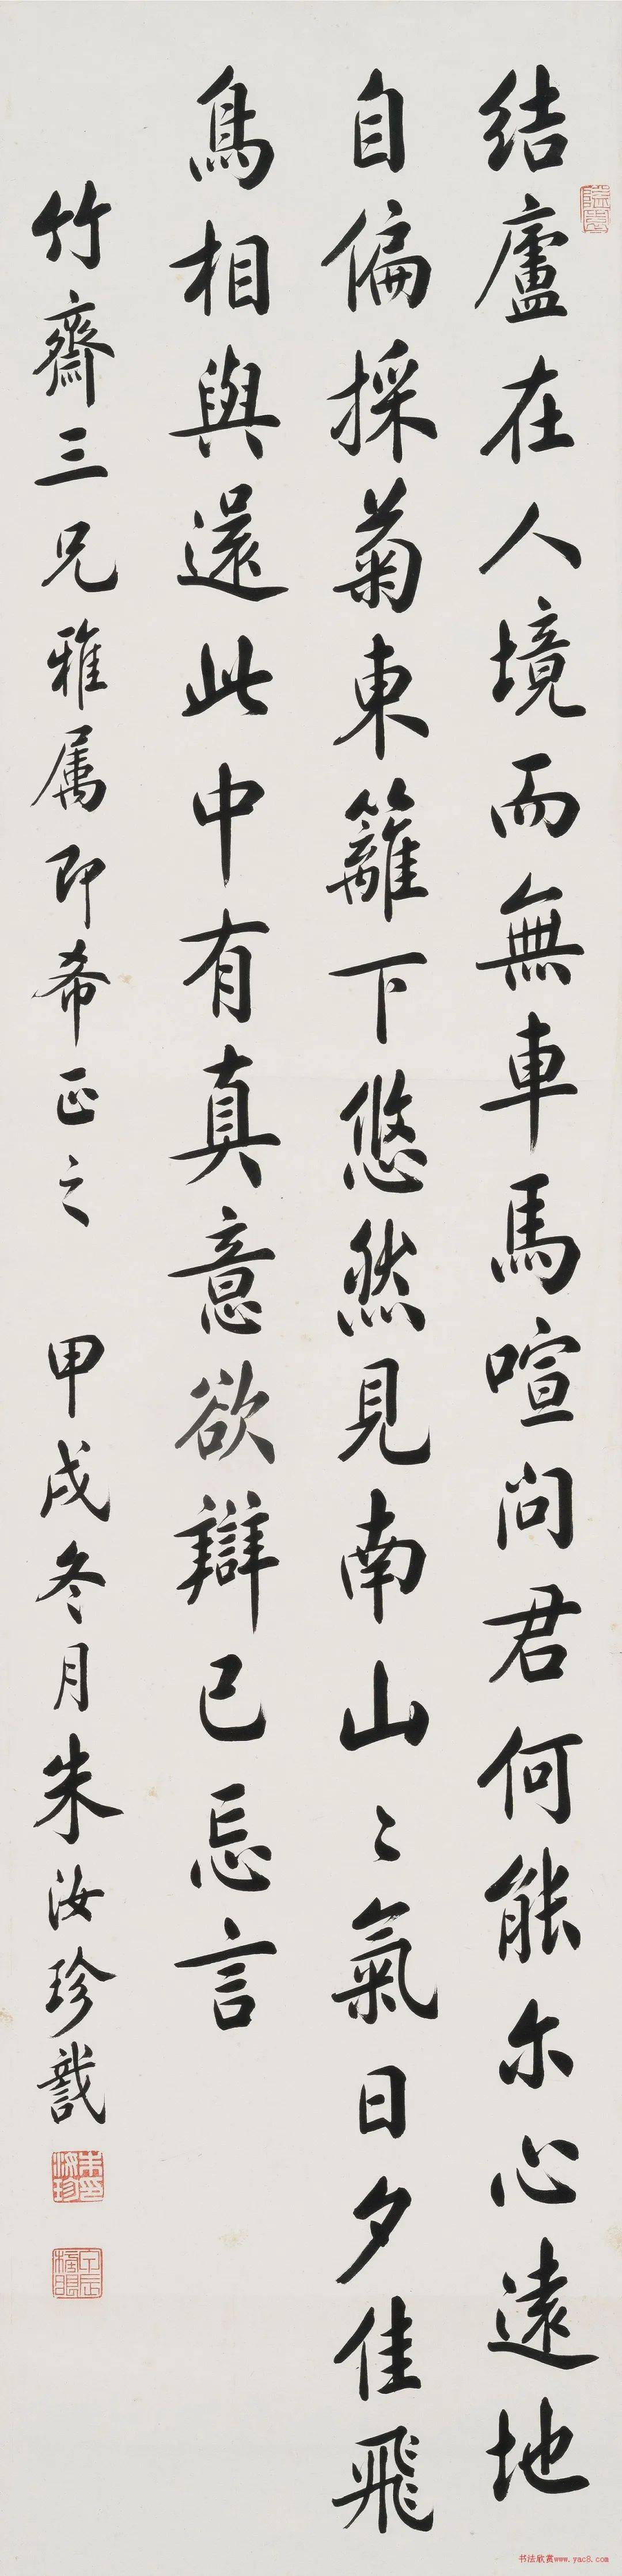 结廬在人境而無車馬喧问君何能尔心遠地
自偏採菊東籬下悠然見南山〻氣日夕佳飛
鳥相與還此中有真意欲辯已忘言
竹齋三兄雅属即希正之 甲戌冬月朱汝珍
朱汝珍
甲辰榜眼
书法欣赏www.yac8.com